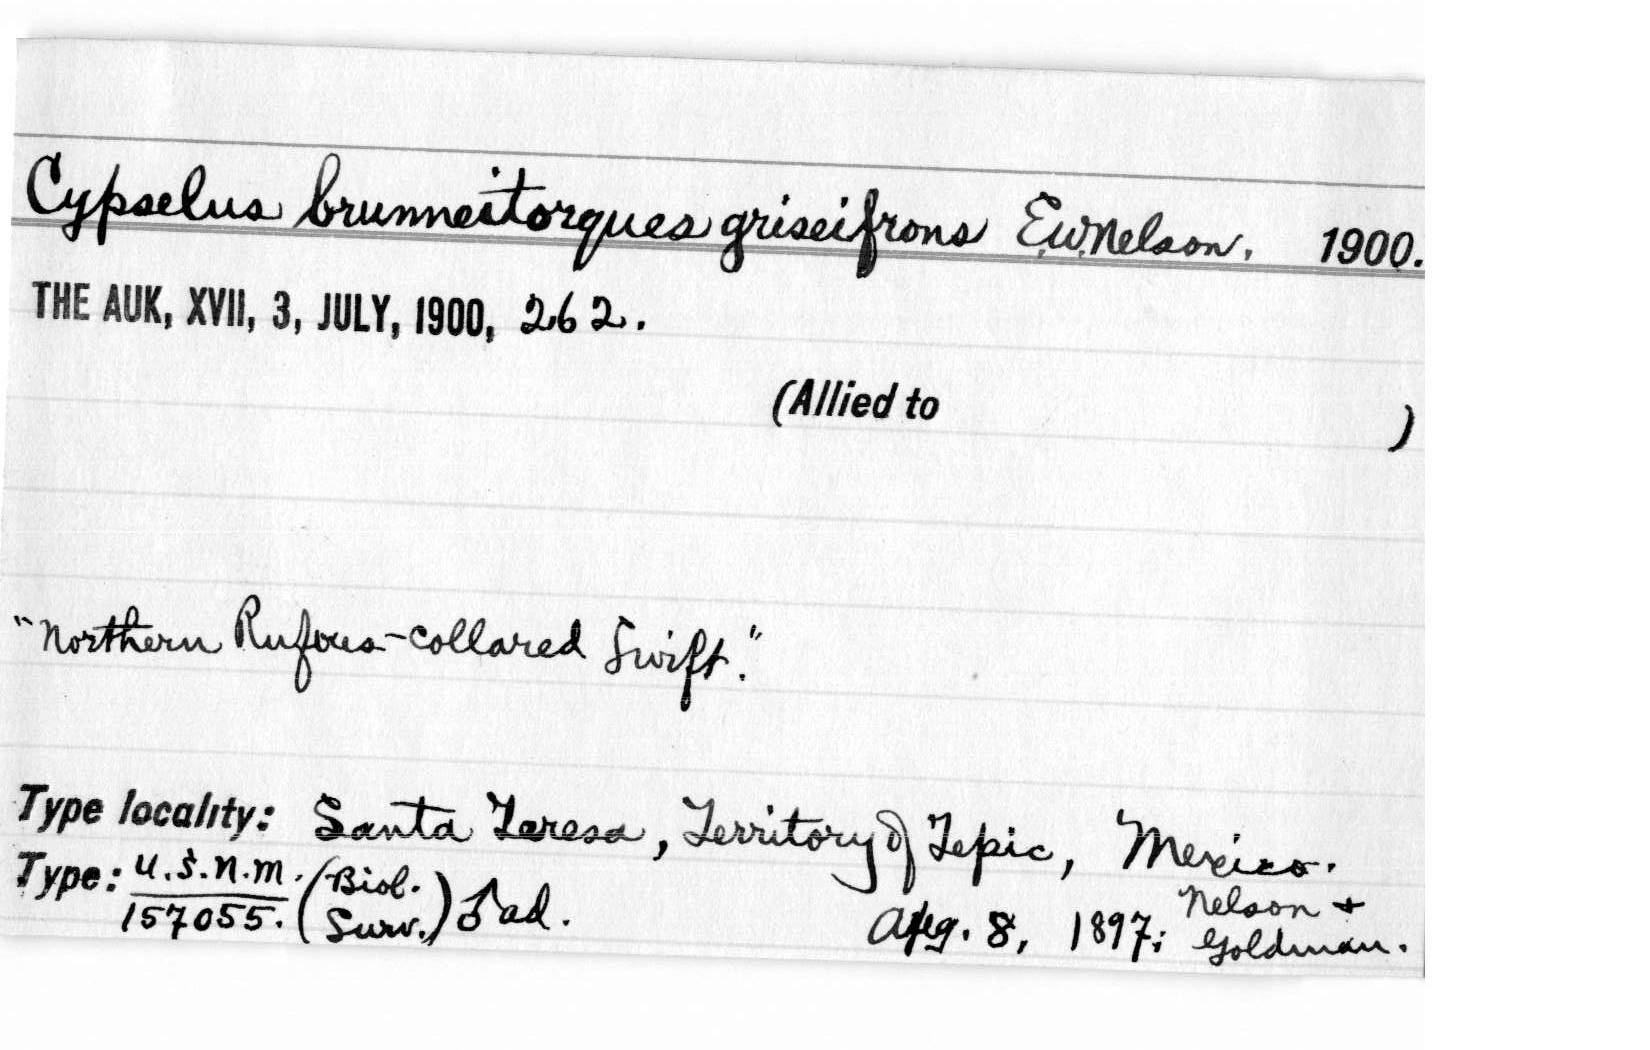 Cypselus brunneitorques griseifrons E.W.Nelson. 1900.
THE AUK, XVII, 3, JULY, 1900, 262.
(Allied to )
"Northern Rufous-collared Swift."
Type locality: Santa Teresa, Territory of Tepic, Mexico.
Type: U.S.N.M. 157055. (Biol. Surv.) ♂ ad. Aug. 8, 1897; Nelson + Goldman.